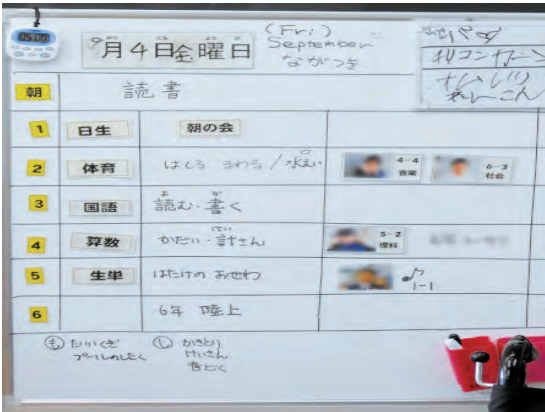 05:00
9月4日金曜日
(Fri)
September
ながつき
朝 読書
1 日生 朝の会
2 体育 はしる まわる/水えい
4-4 音楽
6-3 社会
3 国語 読む・書く
よ か
4 算数 かだい・計さん
けい
5-2 理科
5 生単 はたけの おせわ
1-1
6 6年 陸上
も たいいくぎ
プールのしたく
し かきとり
けいさん
音どく